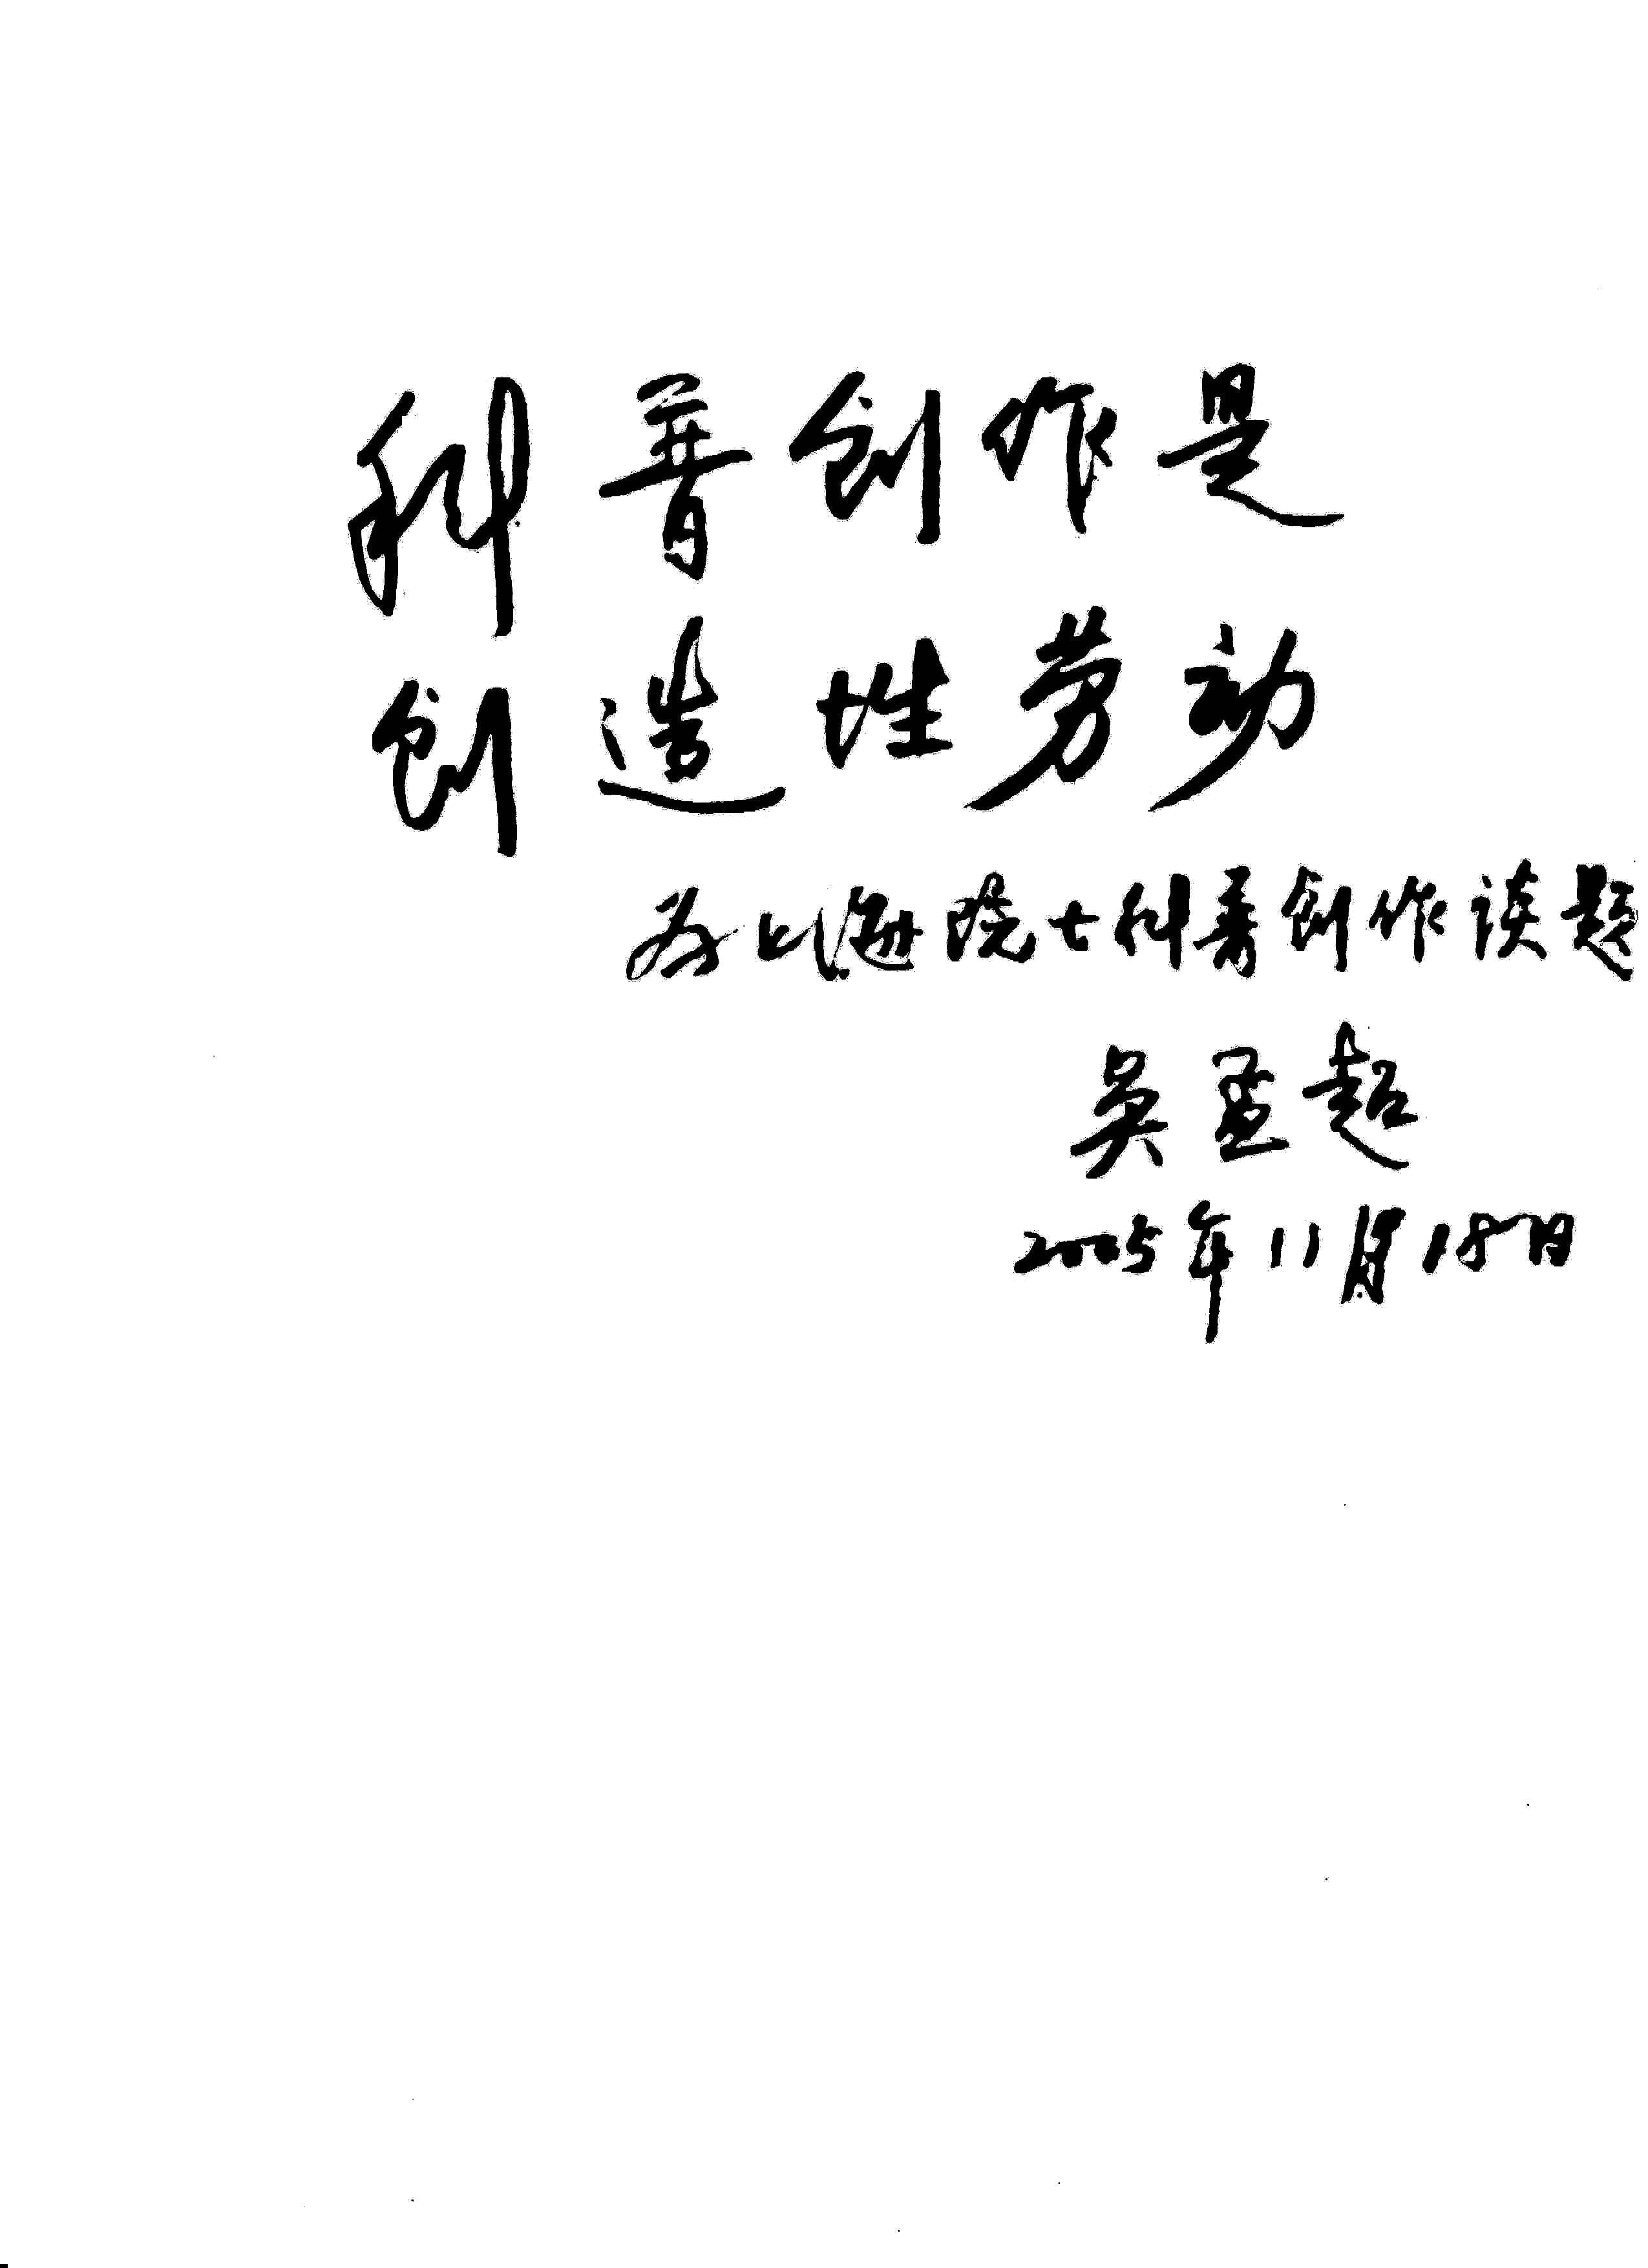 科普创作是
创造性劳动
为上海院士科普创作谈题
吴孟超
2005年11月18日